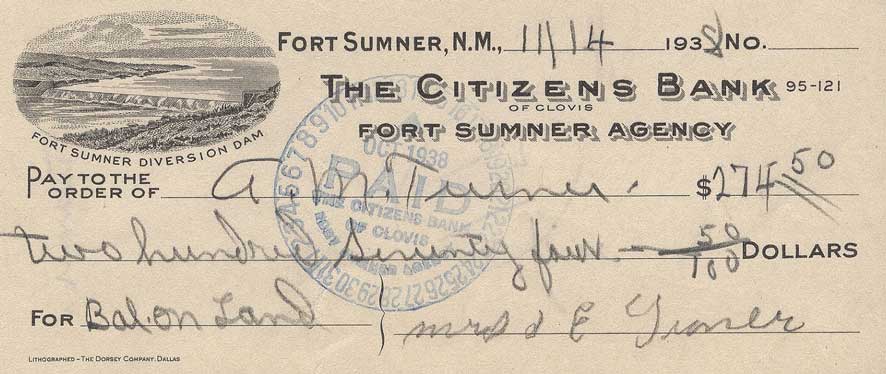 FORT SUMNER, N.M., 11/14 1938 NO.
THE CITIZENS BANK 95-121
OF CLOVIS
FORT SUMNER AGENCY
FORT SUMNER DIVERSION DAM
OCT 1938
PAID
THE CITIZENS BANK
OF CLOVIS
PAY TO THE
ORDER OF A M Turner $274 50
two hundred seventy four 50/100 DOLLARS
FOR Bal. on Land Mrs J E
LITHOGRAPHED - THE DORSEY COMPANY, DALLAS